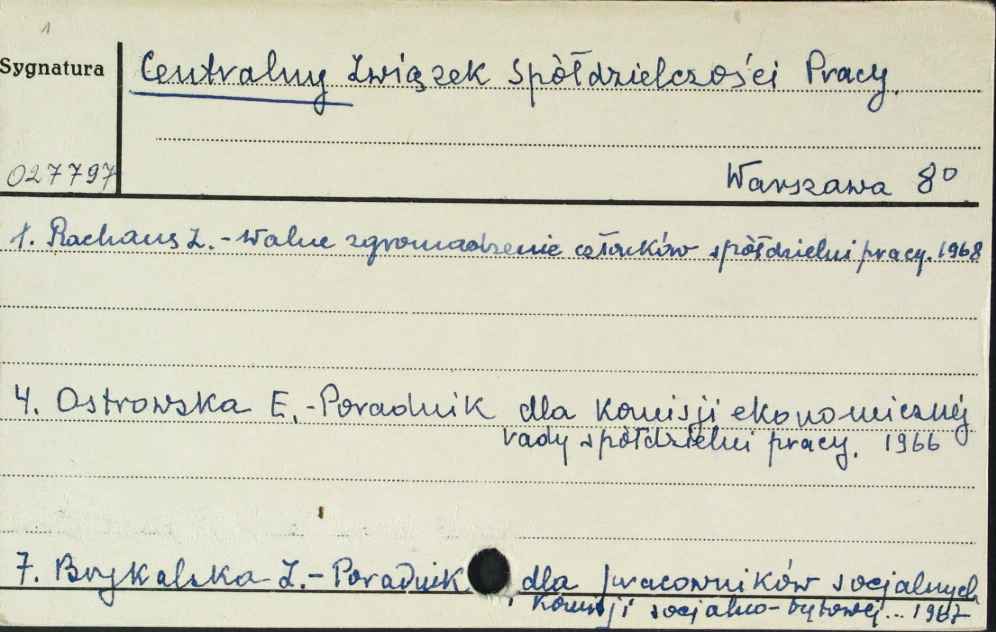 1
Sygnatura
Centralny Związek Spółdzielczości Pracy.
027797
Warszawa 8°
1. Rachaus Z. - Walne zgromadzenie członków spółdzielni pracy. 1968
4. Ostrowska E. - Poradnik dla Komisji ekonomicznej
rady spółdzielni pracy. 1966
7. Brykalska Z. - Poradnik dla pracowników socjalnych
, Komisji socjalno-bytowej... 1967